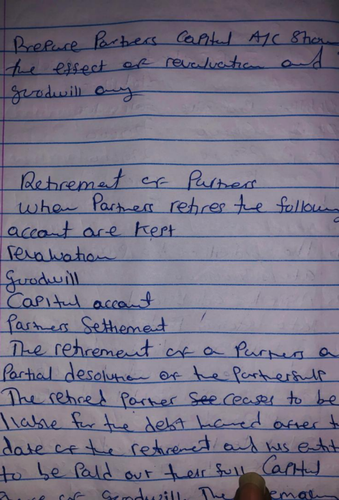 Prepare Partners Capital A/C Show
the effect of revaluation and
goodwill any
Retirement of Partners
When Partners retires the following
accant are Kept
revaluation
goodwill
Capital accant
Partners Settlement
The retirement of a Partners a
Partial desolution of the Partnership
The retired Partner See ceases to be
liable for the debt incured after t
date of the retirement and his entit
to be Paid out their full Capital
of Goodwill. The remain